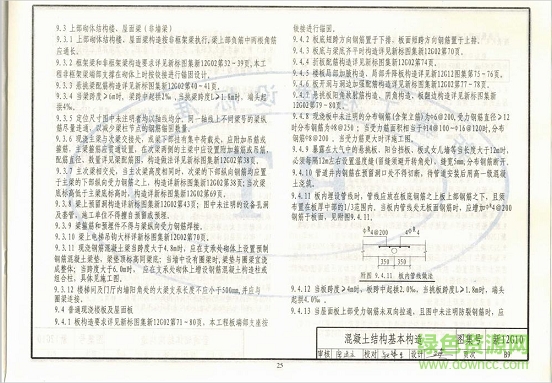 9.3 上部砌体结构楼、屋面梁(非墙梁)
9.3.1 上部砌体结构楼、屋面梁构造按非框架梁执行,梁上部负筋中两根角筋
应通长。
9.3.2 框架梁和非框架梁构造要求详见新标图集新12G02第32~39页,本工
程非框架梁端部支撑在砌体上时按铰接进行锚固设计。
9.3.3 悬挑梁配筋构造详见新标图集新12G02第40~41页。
9.3.4 当梁跨度≥4m时,梁跨中起拱2‰,当挑梁跨度L≥1.8m时,端头起
拱4‰。
9.3.5 定位尺寸图中未注明者均以轴线均分,同一轴线上不同梁号的梁纵
筋尽量连通,以减少梁柱节点的钢筋锚固数量。
9.3.6 现浇主梁与次梁交接处,或梁下部挂有集中荷载处,应附加吊筋或
箍筋。主梁箍筋应贯通设置,在次梁两侧的主梁中应设置附加箍筋或吊筋,
配筋直径、数量详见梁配筋图,构造做法详见新标图集新12G02第38页。
9.3.7 主次梁相交处,当主次梁高度相同时,次梁的下部纵向钢筋应置于
主梁的下部纵向受力钢筋之上,构造详见新标图集新12G02第38页;当次梁
底标高低于主梁底标高时,构造详见新标图集新12G02第69页。
9.3.8 梁上预留洞构造详见新标图集新12G02第43页;图中未注明的设备孔洞
及套管,施工单位不得擅自预留或预埋。
9.3.9 梁箍筋和预埋件不得与梁纵向受力钢筋焊接。
9.3.10 梁上电梯吊钩大样详新标图集新12G02第70页。
9.3.11 现浇钢筋混凝土梁当跨度大于4.8m时,应在支承处砌体上设置预制
钢筋混凝土梁垫,梁垫顶标高同梁底;当墙中设有圈梁时,梁垫与圈梁宜浇
成整体;当跨度大于6.0m时,应在支承处砌体上增设钢筋混凝土构造柱或
组合柱,具体见施工图。
9.3.12 楼梯间及门厅内墙阳角处的大梁支承长度不应小于500mm,并应与
圈梁连接。
9.4 普通现浇楼板及屋面板
9.4.1 板构造要求详见新标图集新12G02第71~80页。本工程板端部支座按
铰接进行锚固。
9.4.2 板底短跨方向钢筋置于下排,板面短跨方向钢筋置于上排。
9.4.3 板底与梁底齐平时构造详见新标图集新12G02第70页。
9.4.4 折板配筋构造详见新标图集新12G02第74页。
9.4.5 楼板局部加腋构造、局部升降板构造详见新12G12图集第75~76页。
9.4.6 板开洞与洞边加强钢筋构造详见新标图集新12G02第77~78页。
9.4.7 悬挑板阳角放射筋构造、阴角构造、板翻边构造详见新标图集新
12G02第79~80页。
9.4.8 现浇板中未注明的分布钢筋(含架立筋)为φ6@200,受力钢筋直径≥12
时分布钢筋为φ8@250;当受力筋面积相当于φ14@100~φ16@120时,分布
钢筋φ8@200。当受力筋更大时,详见施工图。
9.4.9 暴露在大气中的悬挑板、阳台挡板、板式女儿墙等当长度大于12m时,
必须每隔12m左右设置温度缝(留缝须避开转角处),缝宽5mm,分布钢筋断开。
9.4.10 管道井内钢筋在预留洞口处不得切断,待管道安装后用高一级混凝
土浇筑。
9.4.11 板内埋设管线时,管线应放在板底钢筋之上板上部钢筋之下,且须
布置在板厚中部的1/3范围内。当板内管线处无板面钢筋时,应增加φᴿ4@200
钢筋于板面,见附图9.4.11。
φᴿ4@200 4φᴿ4
350 350
附图 9.4.11 板内管线做法
9.4.12 当板跨度≥4m时,板跨中起拱2.0‰,当挑板跨度L≥1.8m时,端头
起拱4.0‰。
9.4.13 当屋面板上部受力钢筋未双向拉通,且图中未注明防裂钢筋时,应
混凝土结构基本构造 图集号 新12G10
审核 校对 设计 页次 B9
25